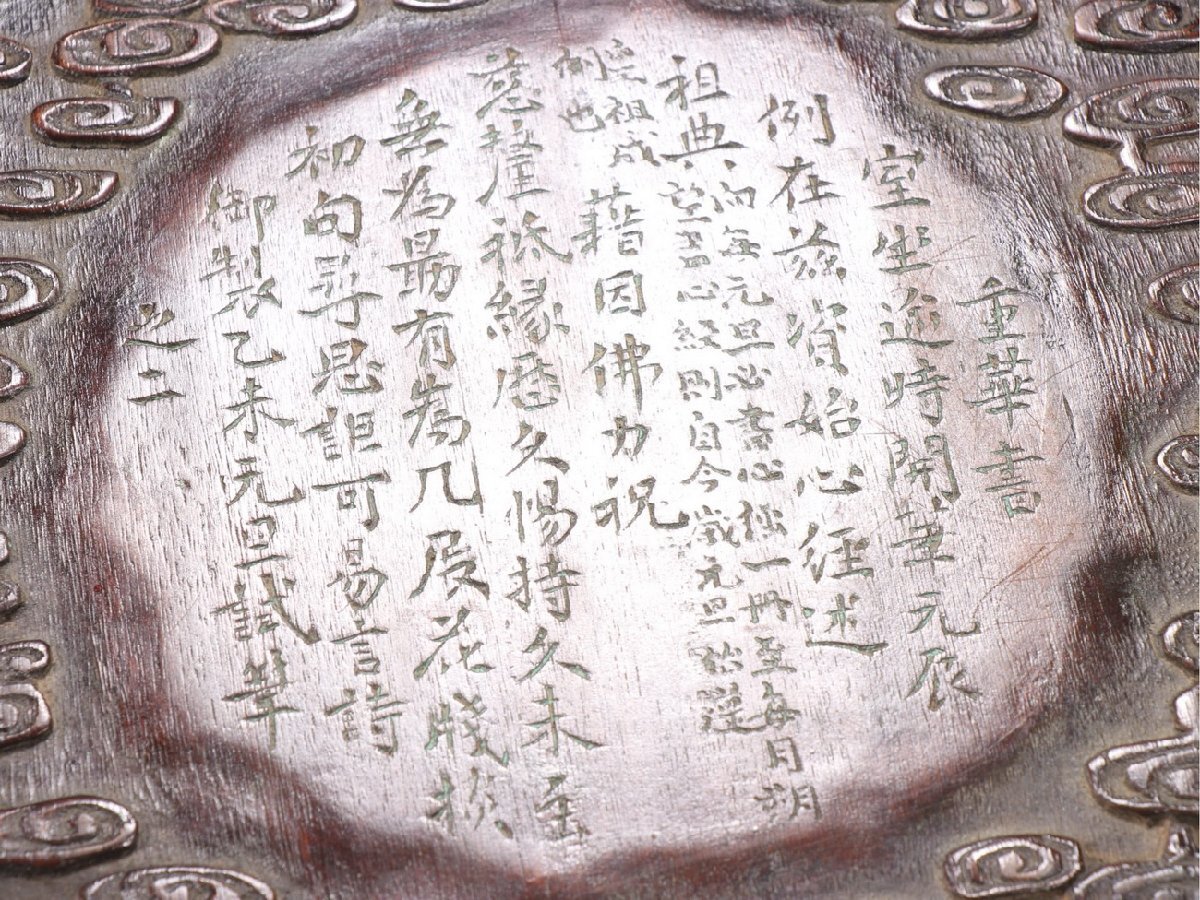 重華書
室坐逾時開筆元辰
例在茲資始心經述
祖典
向每元旦必書心經一冊至每月朔
望書心經則自今歲元旦始謹
遵祖成
例也
藉因佛力祝
慈釐祗緣歷久惕持久未至
無為最有為几展花牋掞
初句尋思詎可易言詩
御製乙未元旦試筆
之二